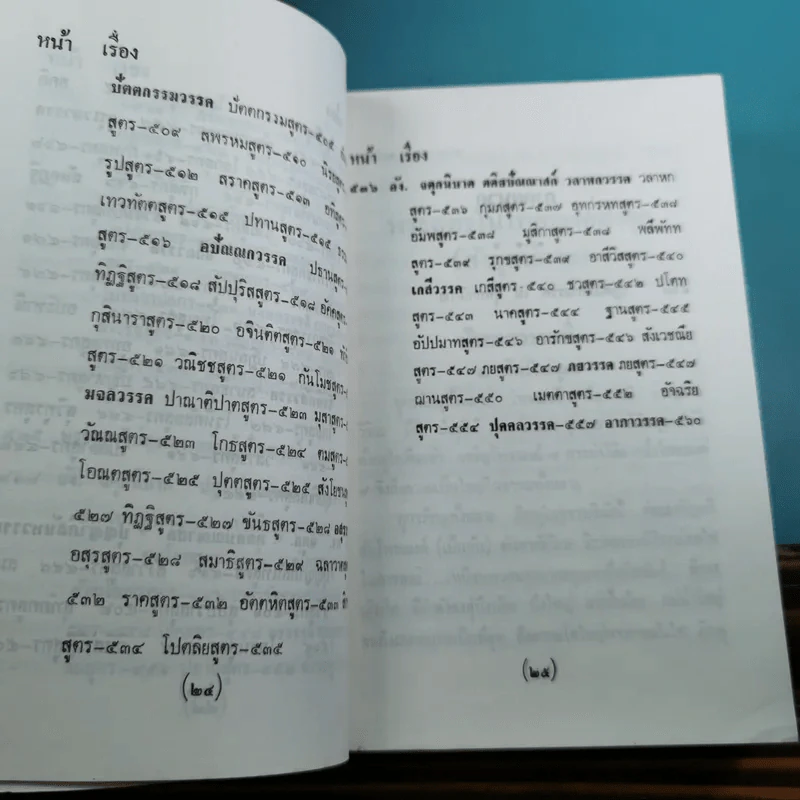 หน้า เรื่อง
ปัตตกรรมวรรค ปัตตกรรมสูตร-๕๐๕
สูตร-๕๐๙ สพรหมสูตร-๕๑๐ นิรยสูตร
รูปสูตร-๕๑๒ สราคสูตร-๕๑๓
เทวทัตตสูตร-๕๑๕ ปทานสูตร-๕๑๕
สูตร-๕๑๖ อปัณณกวรรค ปธานสูตร-
ทิฏฐิสูตร-๕๑๘ สัปปุริสสูตร-๕๑๘ อัคคสูตร-
กุสินาราสูตร-๕๒๐ อจินติตสูตร-๕๒๑
สูตร-๕๒๑ วณิชชสูตร-๕๒๑ กัมโมชสูตร-
มจลวรรค ปาณาติปาตสูตร-๕๒๓ มุสาสูตร-
วัณณสูตร-๕๒๓ โกธสูตร-๕๒๔ ตมสูตร-
โอณตสูตร-๕๒๕ ปุตตสูตร-๕๒๕ สังโยชน
๕๒๗ ทิฏฐิสูตร-๕๒๗ ขันธสูตร-๕๒๘ อสุร
อสุรสูตร-๕๒๘ สมาธิสูตร-๕๒๙ ฉลาว
๕๓๒ ราคสูตร-๕๓๒ อัตตหิตสูตร-๕๓๓
สูตร-๕๓๔ โปตลิยสูตร-๕๓๕
(๒๔)
หน้า เรื่อง
๕๓๖ อัง. จตุกนิบาต ตติยปัณณาสก์ วลาหกวรรค วลาหก
สูตร-๕๓๖ กุมภสูตร-๕๓๗ อุทกรหทสูตร-๕๓๘
อัมพสูตร-๕๓๘ มุสิกาสูตร-๕๓๘ พลีพัทท
สูตร-๕๓๙ รุกขสูตร-๕๓๙ อาสีวิสสูตร-๕๔๐
เกสีวรรค เกสีสูตร-๕๔๐ ชวสูตร-๕๔๒ ปโตท
สูตร-๕๔๓ นาคสูตร-๕๔๔ ฐานสูตร-๕๔๕
อัปปมาทสูตร-๕๔๖ อารักขสูตร-๕๔๖ สังเวชณีย
สูตร-๕๔๗ ภยสูตร-๕๔๗ ภยวรรค ภยสูตร-๕๔๗
ฌานสูตร-๕๕๐ เมตตาสูตร-๕๕๒ อัจฉริย
สูตร-๕๕๔ ปุคคลวรรค-๕๕๗ อาภาวรรค-๕๖๐
(๒๕)